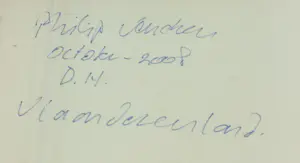 Philip
October - 2008
D.H.
Vlaanderenland.